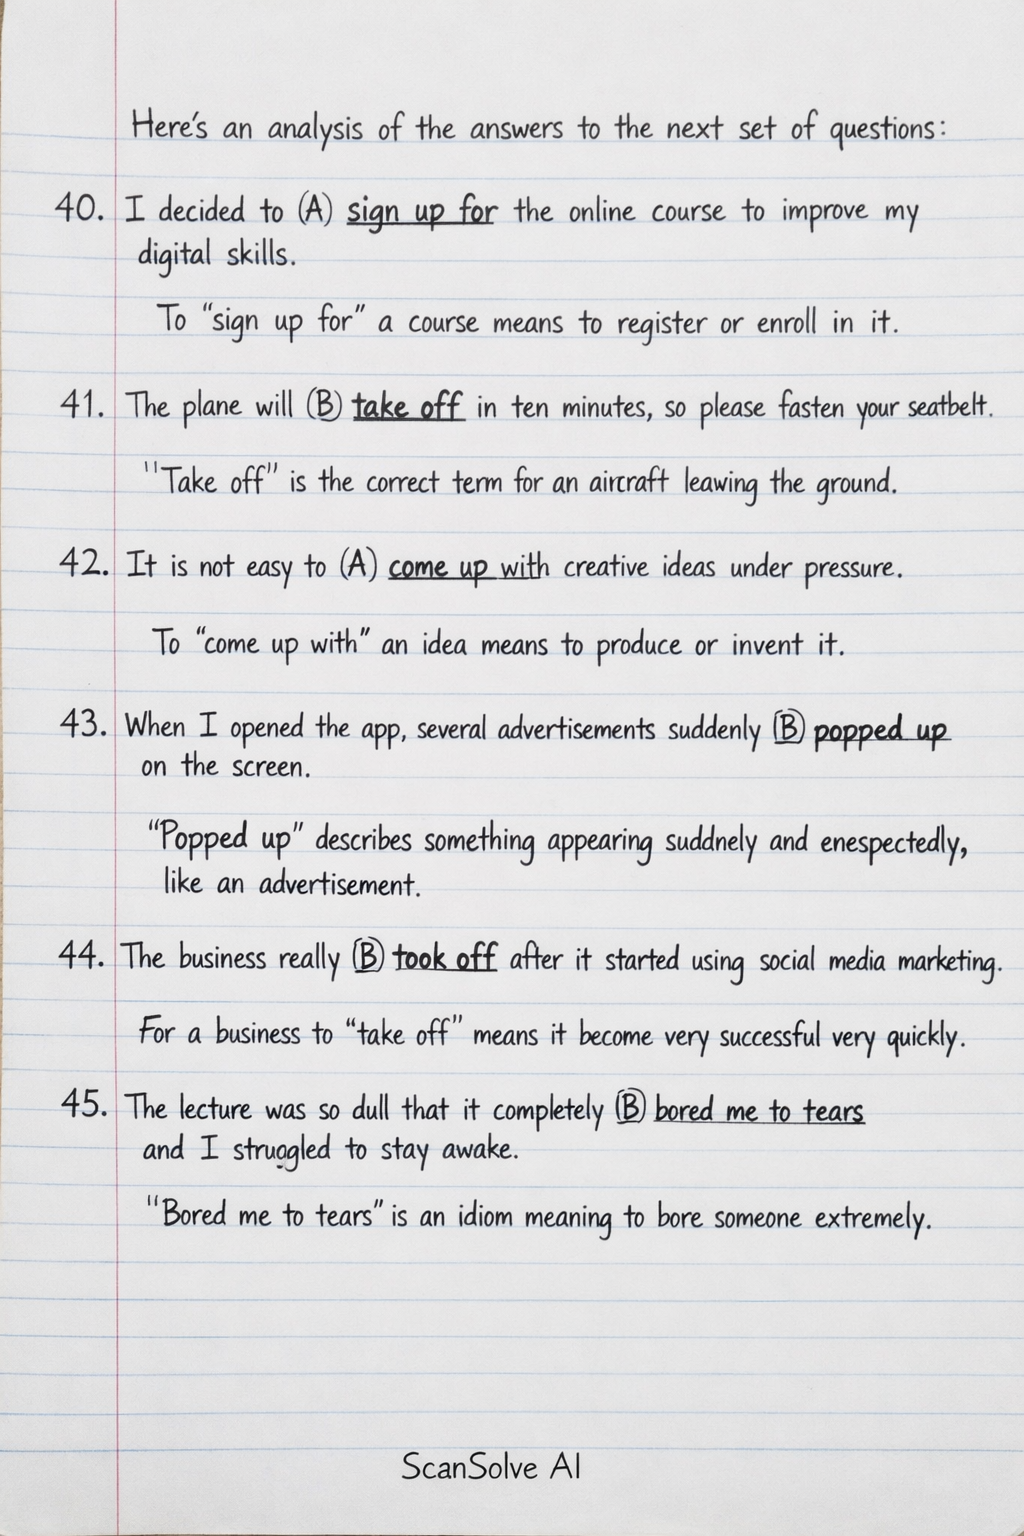 Here's an analysis of the answers to the next set of questions:
40. I decided to (A) sign up for the online course to improve my
digital skills.
To "sign up for" a course means to register or enroll in it.
41. The plane will (B) take off in ten minutes, so please fasten your seatbelt.
"Take off" is the correct term for an aircraft leawing the ground.
42. It is not easy to (A) come up with creative ideas under pressure.
To "come up with" an idea means to produce or invent it.
43. When I opened the app, several advertisements suddenly (B) popped up
on the screen.
"Popped up" describes something appearing suddnely and enespectedly,
like an advertisement.
44. The business really (B) took off after it started using social media marketing.
For a business to "take off" means it become very successful very quickly.
45. The lecture was so dull that it completely (B) bored me to tears
and I struggled to stay awake.
"Bored me to tears" is an idiom meaning to bore someone extremely.
ScanSolve AI